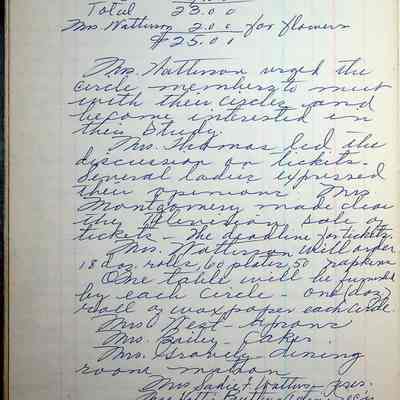 Total 23.00
Mrs. Watterson 2.00 for flowers
$25.00
Mrs. Watterson urged the
circle members to meet
with their circles and
become interested in
their Study.
Mrs. Thomas led the
discussion on tickets.
Several ladies expressed
their opinions. Mrs
Montgomery made clear
the sale of
tickets - The deadline for tickets.
Mrs. Watterson will order
18 doz rolls, 160 plates, 50 napkins
One table will be furnished
by each circle - one doz
roll of wax paper each circle.
Mrs. West - aprons
Mrs. Bailey - Cakes
Mrs. Gravely - dining
room
Mrs Sadie F. Watterson - Pres.
Mrs.